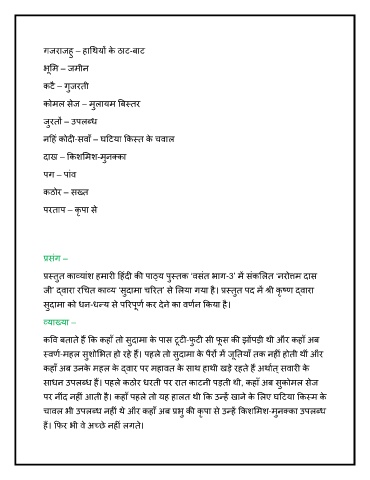 गजराजहु – हाथियों के ठाट-बाट
भूमि – जमीन
कटै – गुजरती
कोमल सेज – मुलायम बिस्तर
जुरतो – उपलब्ध
नहिं कोदी-सवाँ – घटिया किस्त के चवाल
दाख – किशमिश-मुनक्का
पग – पांव
कठोर – सख्त
परताप – कृपा से
प्रसंग –
प्रस्तुत काव्यांश हमारी हिंदी की पाठ्य पुस्तक 'वसंत भाग-3' में संकलित 'नरोत्तम दास
जी' द्वारा रचित काव्य 'सुदामा चरित' से लिया गया है। प्रस्तुत पद में श्री कृष्ण द्वारा
सुदामा को धन-धन्य से परिपूर्ण कर देने का वर्णन किया है।
व्याख्या –
कवि बताते हैं कि कहाँ तो सुदामा के पास टूटी-फुटी सी फूस की झोंपड़ी थी और कहाँ अब
स्वर्ण-महल सुशोभित हो रहे हैं। पहले तो सुदामा के पैरों में जूतियाँ तक नहीं होती थीं और
कहाँ अब उनके महल के द्वार पर महावत के साथ हाथी खड़े रहते हैं अर्थात् सवारी के
साधन उपलब्ध हैं। पहले कठोर धरती पर रात काटनी पड़ती थी, कहाँ अब सुकोमल सेज
पर नींद नहीं आती है। कहाँ पहले तो यह हालत थी कि उन्हें खाने के लिए घटिया किस्म के
चावल भी उपलब्ध नहीं थे और कहाँ अब प्रभु की कृपा से उन्हें किशमिश-मुनक्का उपलब्ध
हैं। फिर भी वे अच्छे नहीं लगते।